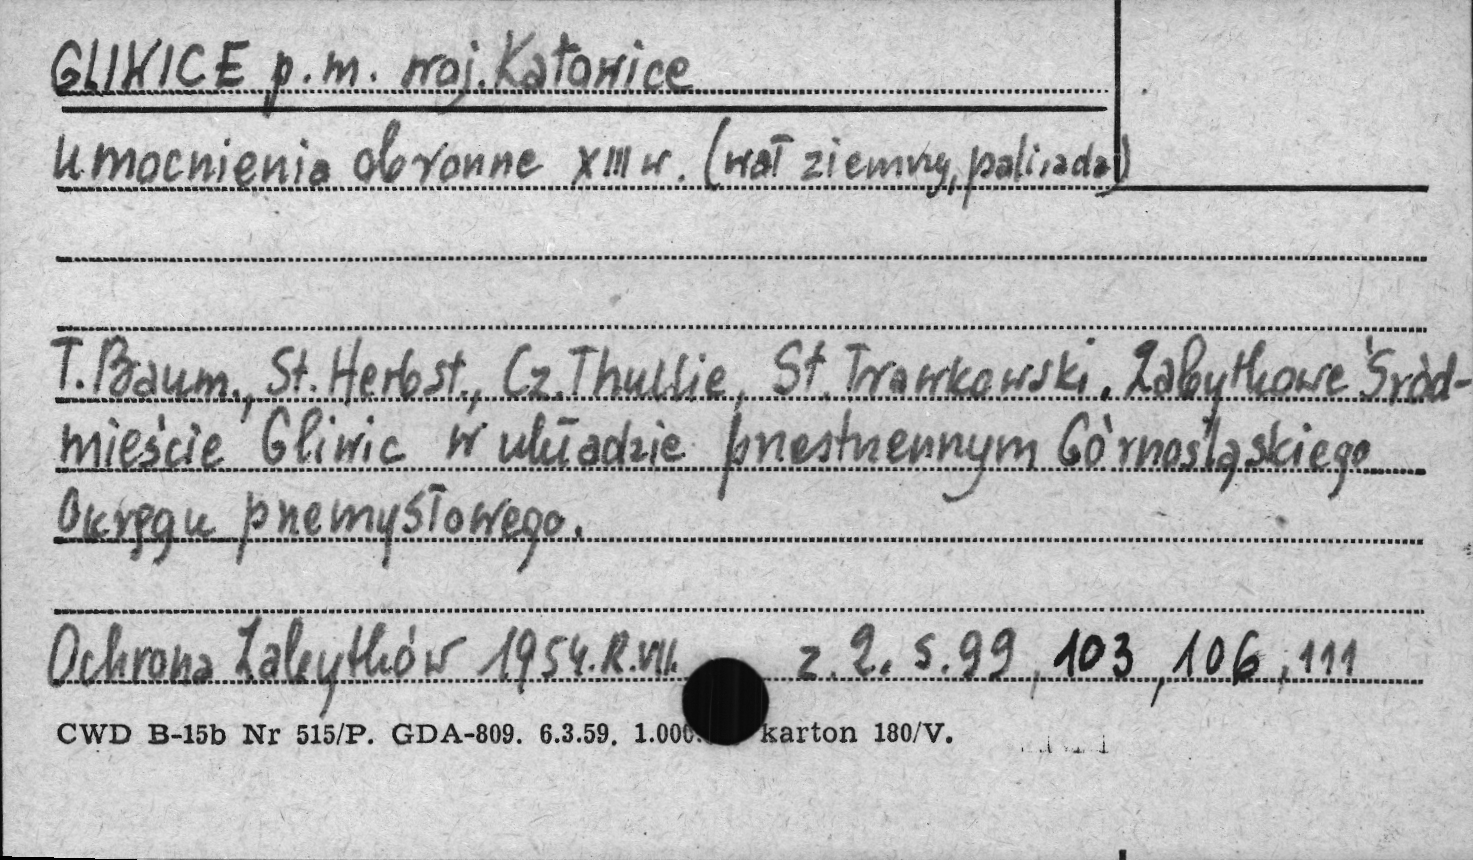 GLIWICE p.m. woj. Katowice
Umocnienia obronne XIII w. (wał ziemny, palisada)
T. Baum., St. Herbst., Cz. Thullie, St. Trawkowski. Zabytkowe Śród-
mieście Gliwic w układzie przestrzennym Górnośląskiego
Okręgu przemysłowego.
Ochrona Zabytków 1954. R. VII. z. 2. s. 99, 103, 106, 111
CWD B-15b Nr 515/P. GDA-809. 6.3.59. 1.000. karton 180/V.